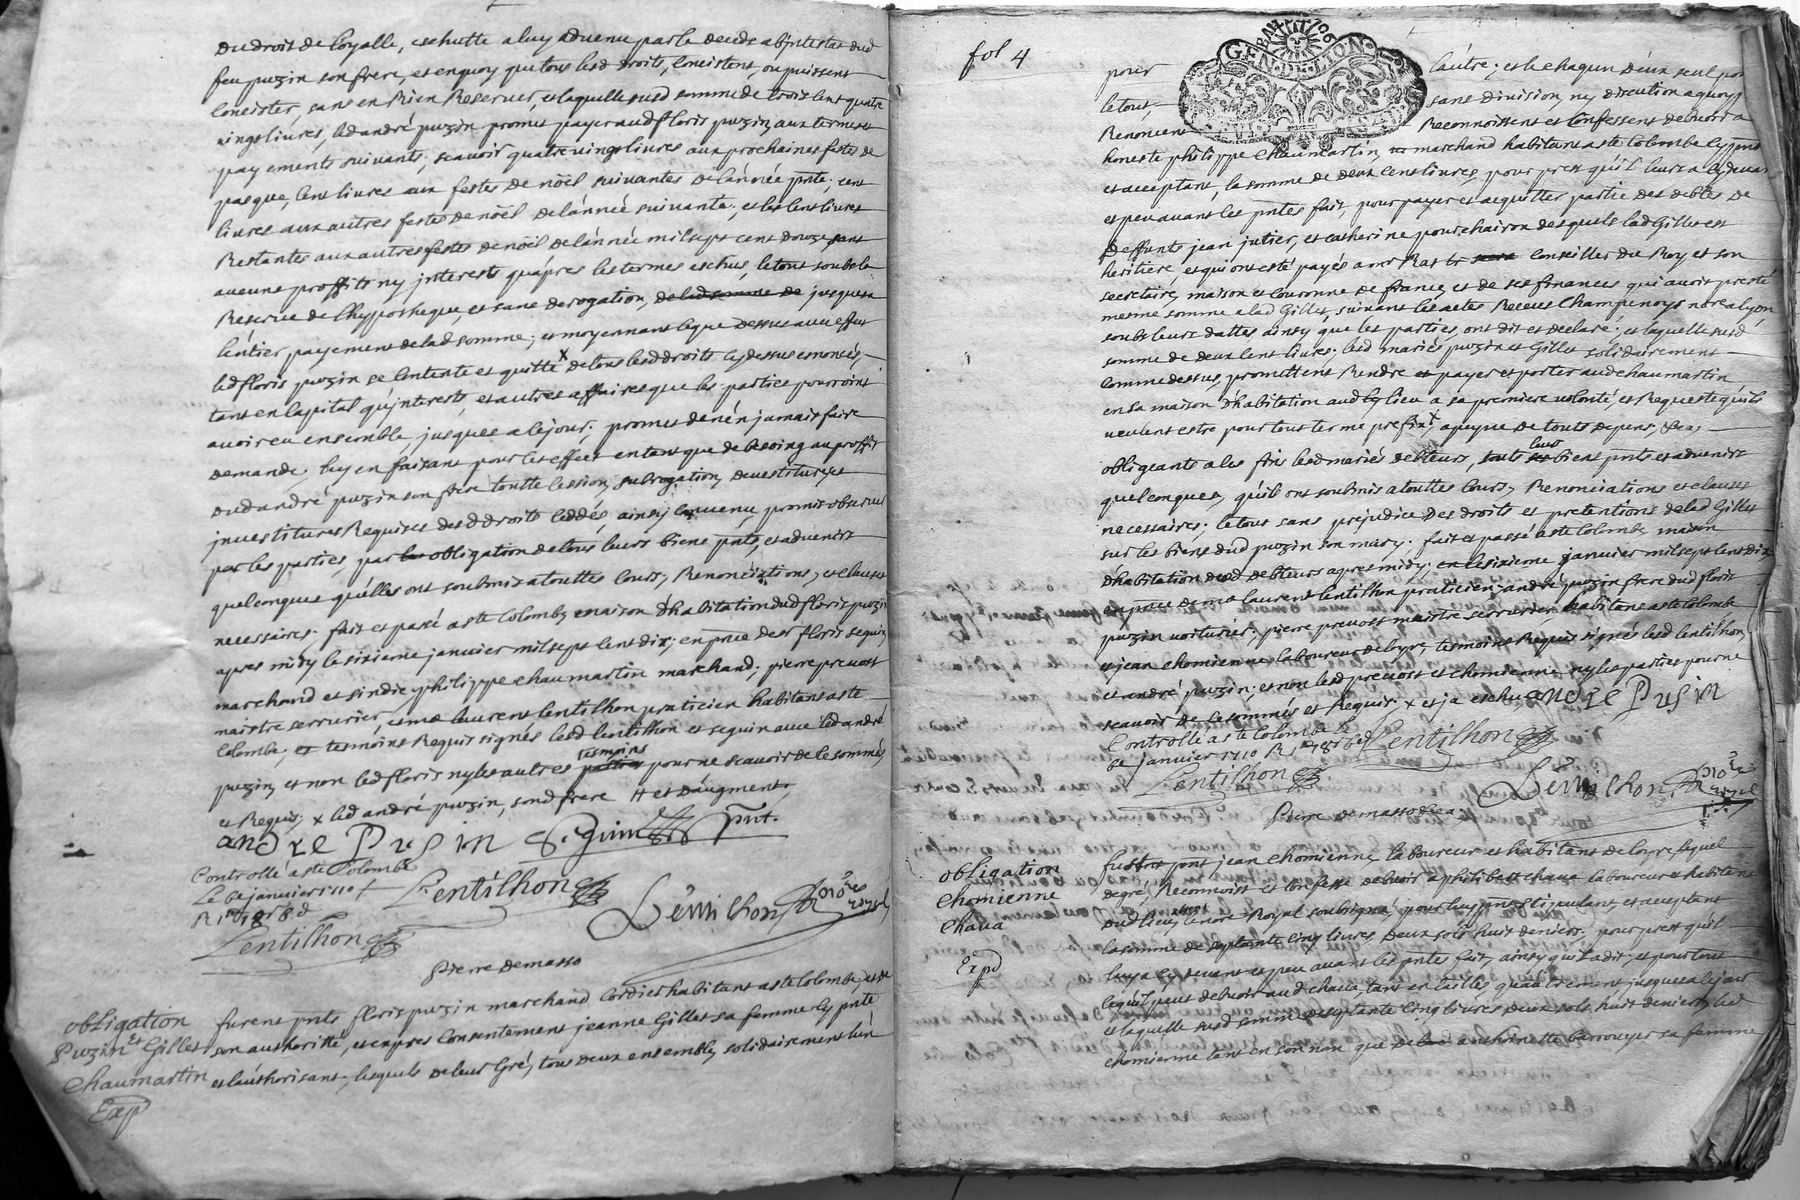 du droit de loyalle, eschutte a luy advenu par le deceds abjntestat dud
feu puzin son frere, et en quoy que tous lesd droits, consistent, ou puissent
consister, sans en Rien Reserver, et laquelle susd somme de trois cent quatre
vingt livres, led andré puzin promet payer aud floris puzin, aux termes et
payements suivants; scavoir quatre vingt livres aux prochaines festes de
pasque, cent livres aux festes de nöel suivantes de l'année pnte; cent
livres aux autres festes de nöel de l'année suivante; et les cent livres
Restantes aux autres festes de nöel de l'année mil sept cent douze sans
aucuns proffits ny jnterests qu'apres les termes eschus, le tout soubs la
Reserve de l'hyppotheque, et sans derogation, de lad somme de jusques a
l'entier payement de lad somme; et moyennant ce que dessus avec effect
led floris puzin se contente et quitte x de tous lesd droits cy dessus enoncés,
tant en capital qu'jnterests, et autres affaires que les parties pourroint
avoir eu ensemble, jusques a ce jour; promet de n'en jamais faire
demande; luy en faisant pour cet effect en tant que de besoing au proffit
dud andré puzin son frere toutte cession, subrogation, devestitures et
jnvestitures Requises desd droits ceddés, ainsy convenu, promis observer
par les parties, par les obligation de tous leurs biens pnts, et advenir
quelconques qu'elles ont soubmis a touttes cours, Renonciations, et clauses
necessaires. fait et passé a ste Colombe maison d'habitation dud floris puzin
apres midy le sixieme janvier mil sept cent dix; en pnce de sr floris seguin
marchand et sindic, philippe chaumartin marchand, pierre prevost
maistre serrurier, et me laurent lentilhon praticien habitans a ste
Colombe; et tesmoins Requis signés lesd lentilhon et seguin avec led andré
puzin, et non led floris ny les autres parties tesmoins pour ne scavoir de ce sommés
et Requis; x led andré puzin, sond frere # et d'augment
andre Pusin Seguin pnt.
Controllé a ste Colombe
Le 6e janvier 1710
R
Lentilhon
Lentilhon
Lentilhon no.re royal
Pierre Demasso
obligation
Puzin Et Gillet
Chaumartin
Exp
furent pnts floris puzin marchand Cordier habitant a ste Colombe, et de
son authorité, et expres Consentement jeanne Gillet sa femme cy pnte
et l'authorisant, lesquels de leur Gré, tous deux ensemble, solidairement l'un
fol 4
GEN DE LION
pour l'autre; et le chaqun d'eux seul pour
le tout, sans division, ny discution a quoy
Renoncent Reconnoissent et Confessent debvoir a
honeste philippe Chaumartin, marchand habitant a ste Colombe cy pnt
et acceptant, la somme de deux cent livres, pour prest qu'il leurs a cy devant
et peu avant les pntes fait, pour payer et acquitter partie des debtes de
deffunts jean jutier, et catherine pourchairox desquels lad Gillet est
heritiere, et qui ont esté payés a Conseiller du Roy et son
secretaire, maison et Couronne de france, et de ses finances qui avoit presté
mesme somme a lad Gillet, suivant les actes Receus Champenoys no.re a lyon,
soubs leurs dattes ainsy que les parties, ont dit et declaré; et laquelle susd
somme de deux cent livres; lesd mariés puzin et Gillet solidairement
Comme dessus promettent Rendre et payer et porter aud chaumartin
en sa maison d'habitation aud lieu a sa premiere volonté, et Requeste qu'ils
veulent estre pour tout terme prefix x, a peyne de touts depens, &a;
obligeants a ces fins lesd mariés debteurs, touts leurs biens pnts et advenir
quelconques, qu'ils ont soubmis a touttes Cours, Renonciations et clauses
necessaires; le tout sans prejudice des droits et pretentions de lad Gillet
sur les biens dud puzin son mary. fait et passé a ste Colombe, maison
d'habitation desd debteurs apres midy, ce sixieme janvier mil sept cent dix;
en pnce de me laurent lentilhon praticien; andré puzin frere dud floris
puzin voiturier, pierre prevost maistre serrurier, habitans a ste Colombe
et jean chomienne laboureur de loyre, tesmoins Requis signés lesd lentilhon,
et andré puzin; et non lesd prevost et chomienne ny les parties pour ne
scavoir de ce sommés et Requis. x et ja eschu andre Pusin
Controllé a ste Colombe le
6e janvier 1710
Lentilhon
Lentilhon
Lentilhon no.re royal
Pierre demasso &a
obligation
Chomienne
Chava
Expd
fust pnt jean chomienne laboureur et habitant de loyre lequel
de gré, Reconnoist et Confesse debvoir a philibert chava laboureur et habitant
dud lieu, absent le no.re Royal soubsigné, pour luy pnt stipulant et acceptant
la somme de septante cinq livres, deux sols huit deniers; pour prest qu'il
luy a cy devant et peu avant les pntes fait, ainsy qu'il a dit, et pour tout
ce qu'il peut debvoir aud chava, tant en cedulles qu'autrement jusques a ce jour
et laquelle susd somme de septante cinq livres deux sols huit deniers, led
chomienne tant en son nom que de anthoinette barrouyer sa femme